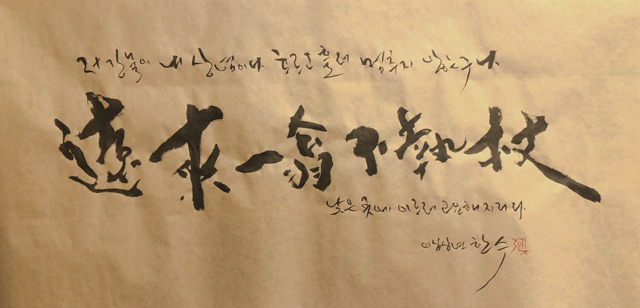 강물이 내 상념이다 흐르고 흘러 멈추지 않는구나
遠來一翁不執杖
낮은 곳에 이르러 고요해지리라
한수